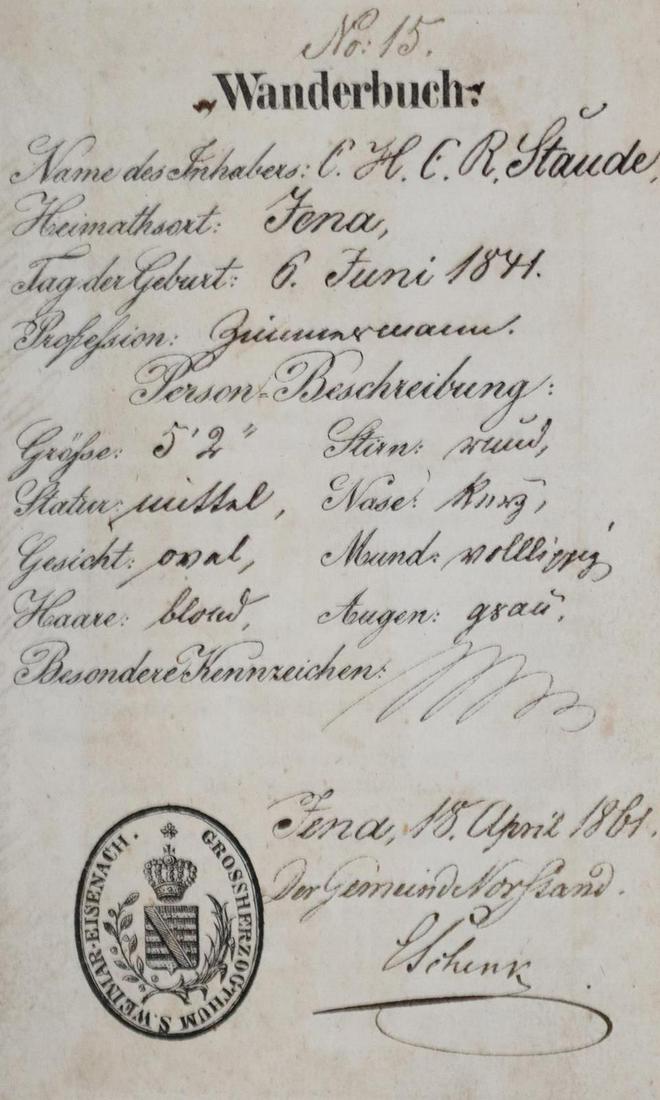 No: 15.
Wanderbuch.
Name des Inhabers: C. H. C. R. Staude,
Heimathsort: Jena,
Tag der Geburt: 6. Juni 1841.
Profession: Zimmermann.
Person-Beschreibung:
Größe: 5' 2" Stirn: rund,
Statur: mittel, Nase: kurz,
Gesicht: oval, Mund: volllippig,
Haare: blond, Augen: grau.
Besondere Kennzeichen:
Jena, 18. April 1861.
Der Gemeind Vorstand.
Schenk
GROSSHERZOGTHUM S. WEIMAR-EISENACH.